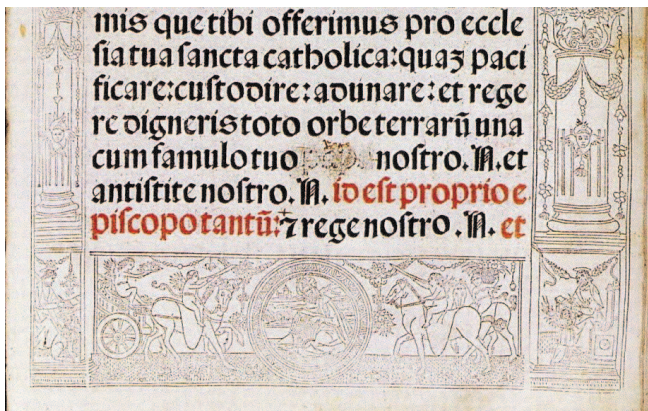 mis que tibi offerimus pro eccle
sia tua sancta catholica: quaʒ paci
ficare: custodire: adunare: et rege
re digneris toto orbe terrarū una
cum famulo tuo nostro. N. et
antistite nostro. N. id est proprio e
piscopo tantū: ⁊ rege nostro. N. et